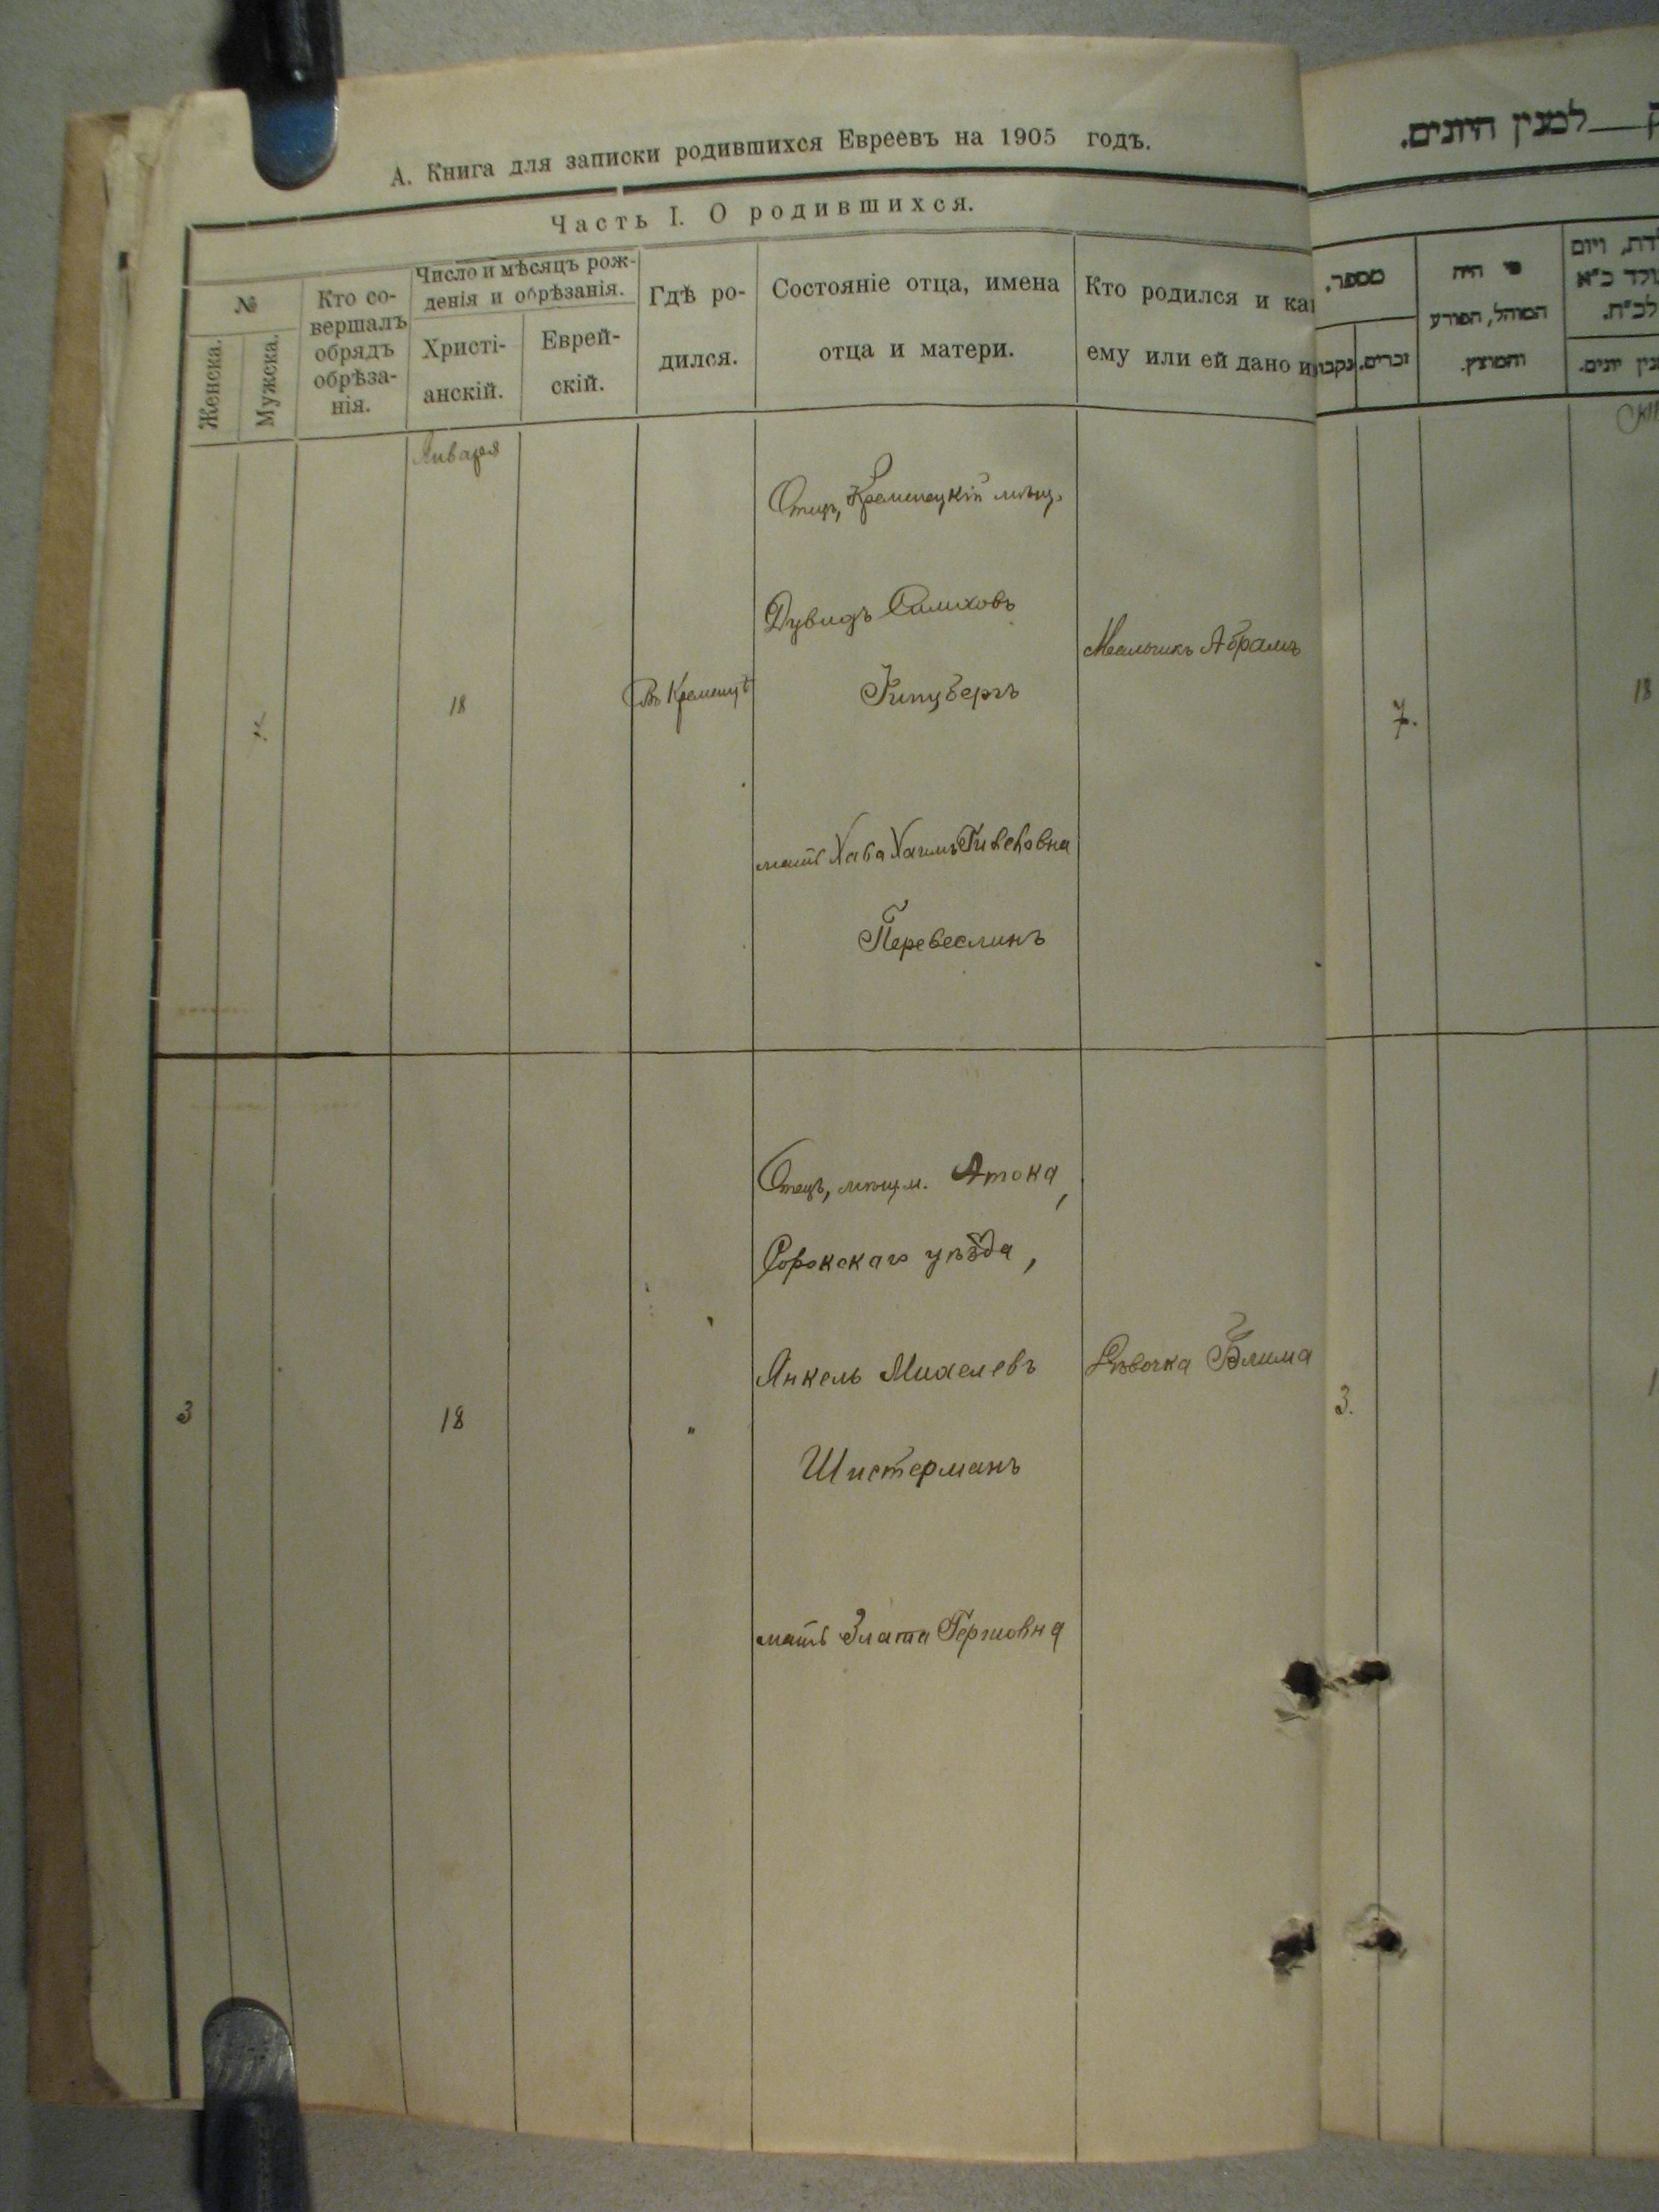 А. Книга для записки родившихся Евреевъ на 1905 годъ.
Часть I. О родившихся.
№
Женска.
Мужска.
Кто со-
вершалъ
обрядъ
обрѣза-
нія.
Число и мѣсяцъ рож-
денія и обрѣзанія.
Христі-
анскій.
Еврей-
скій.
Гдѣ ро-
дился.
Состояніе отца, имена
отца и матери.
Кто родился и ка
ему или ей дано и
Января
18
Въ Кременцѣ
Отецъ, Кременецкій мѣщ.
Дувидъ
Гинцбергъ
мать Хава
Перевеслинъ
Мальчикъ Абрамъ
3
18
"
Отецъ, мѣщ. м. Атока,
Сорокскаго уѣзда,
Янкель Михелевъ
Шистерманъ
мать Злата Гершовна
Дѣвочка Блима
למנין היונים.
מספר.
זכרים.
מי היה
המוהל, הפורע
והמוצץ.
ויום
כ"א
לכ"ח.
יונים.
7.
18
3.